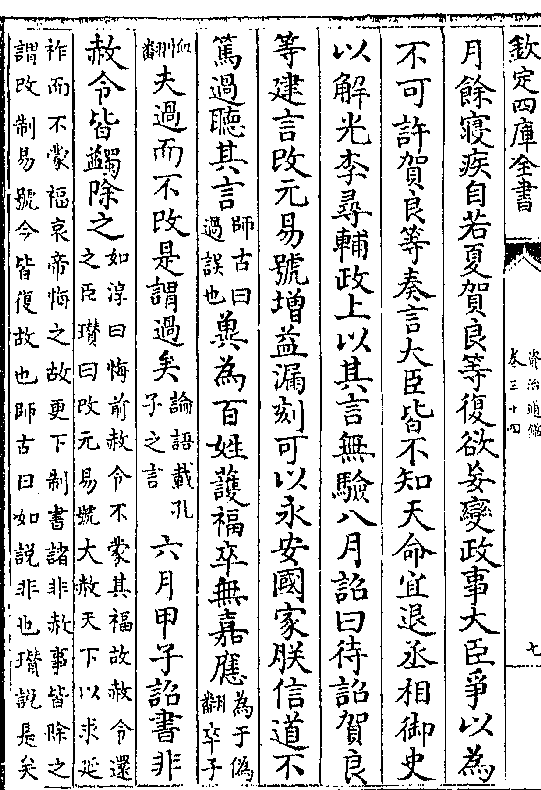 欽定四庫全書
資治通鑑
卷三十四
七
月餘寢疾自若夏賀良等復欲妄變政事大臣爭以為
不可許賀良等奏言大臣皆不知天命宜退丞相御史
以解光李尋輔政上以其言無驗八月詔曰待詔賀良
等建言改元易號增益漏刻可以永安國家朕信道不
篤過聽其言師古曰過誤也兾為百姓護福卒無嘉應為于偽翻卒子
卹翻夫過而不改是謂過矣論語載孔子之言六月甲子詔書非
赦令皆蠲除之如淳曰悔前赦令不蒙其福故赦令還之臣瓚曰改元易號大赦天下以求延
祚而不蒙福哀帝悔之故更下制書諸非赦事皆除之謂改制易號今皆復故也師古曰如説非也瓚説是矣